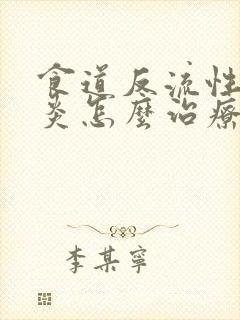 食道反流性
炎怎麼治療
李某寧